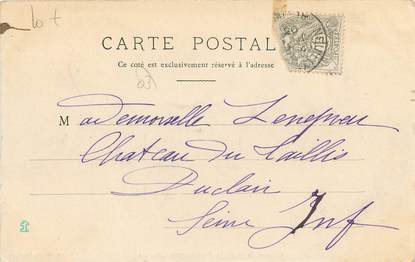 Lot
CARTE POSTALE
Ce côté est exclusivement réservé à l'adresse
63
Mademoiselle Lenepveu
Chateau du Taillis
Duclair
Seine Inf